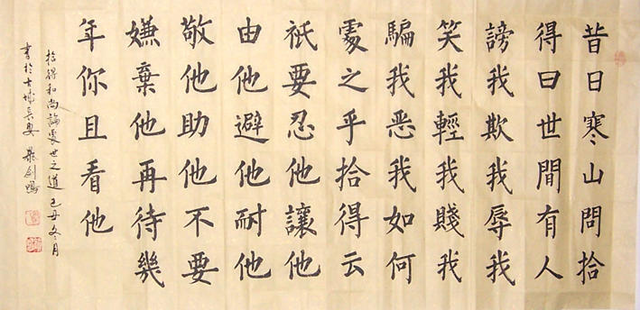 昔日寒山問拾
得曰世間有人
謗我欺我辱我
笑我輕我賤我
騙我恶我如何
處之乎拾得云
衹要忍他讓他
由他避他耐他
敬他助他不要
嫌棄他再待幾
年你且看他
拾得和尚論處世之道己丑冬月
書於